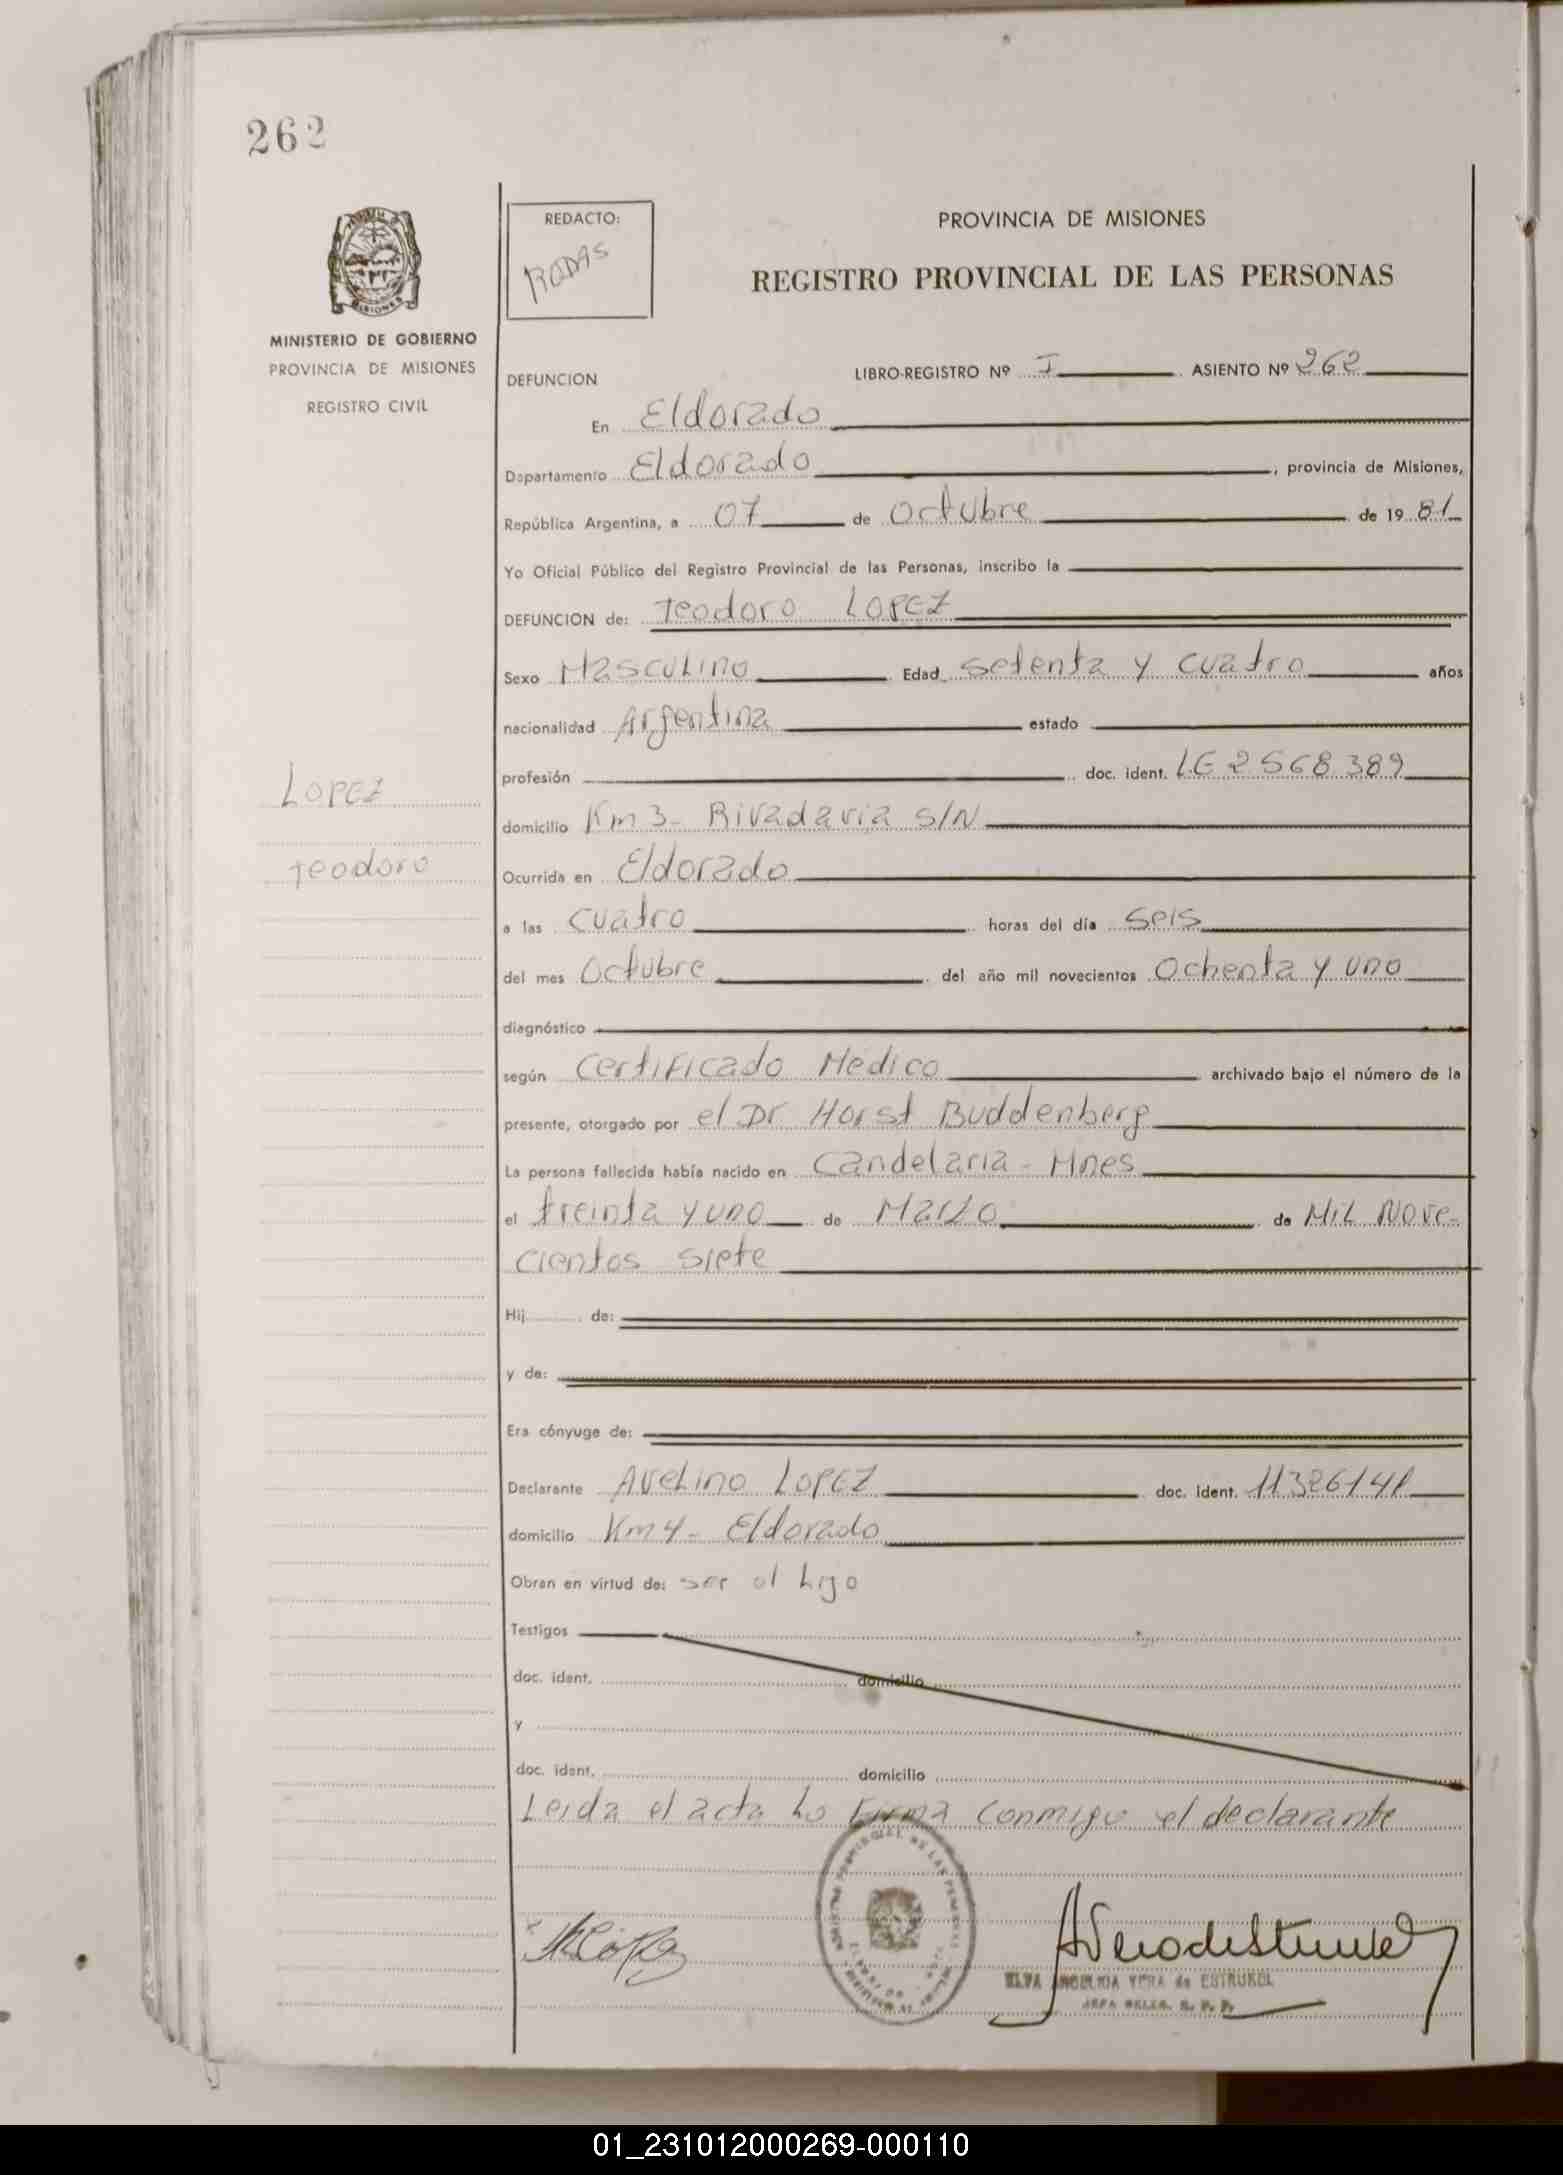 262
REDACTO:
RODAS
PROVINCIA DE MISIONES
REGISTRO PROVINCIAL DE LAS PERSONAS
MISIONES
MINISTERIO DE GOBIERNO
PROVINCIA DE MISIONES
REGISTRO CIVIL
DEFUNCION LIBRO-REGISTRO Nº I ASIENTO Nº 262
En Eldorado
Departamento Eldorado, provincia de Misiones,
República Argentina, a 07 de Octubre de 1981
Yo Oficial Público del Registro Provincial de las Personas, inscribo la
DEFUNCION de: Teodoro LOPEZ
Sexo Masculino Edad setenta y cuatro años
nacionalidad Argentina estado
profesión doc. ident. LE 2568389
domicilio Km 3- Rivadavia S/N
LOPEZ
Teodoro
Ocurrida en Eldorado
a las cuatro horas del día seis
del mes Octubre del año mil novecientos Ochenta y uno
diagnóstico
según Certificado Medico archivado bajo el número de la
presente, otorgado por el Dr Horst Buddenberg
La persona fallecida había nacido en Candelaria - Mnes
el treinta y uno de Marzo de Mil Nove-
cientos siete
Hij de:
y de:
Era cónyuge de:
Declarante Avelino LOPEZ doc. ident. 11326141
domicilio Km 4- Eldorado
Obran en virtud de: ser el hijo
Testigos
doc. ident. domicilio
y
doc. ident. domicilio
Leida el acta Lo Firma conmigo el declarante
ELVA ANGELICA VERA de ESTRUKEL
JEFA DELEG. R. P. P.
01_231012000269-000110